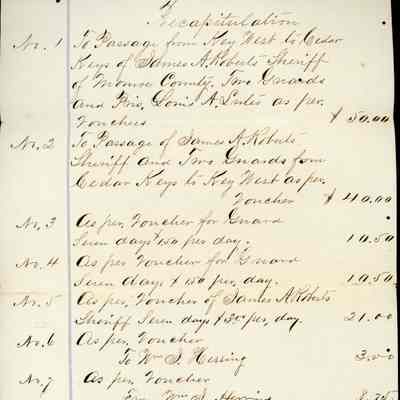 Recapitulation
No. 1 To Passage from Key West to Cedar
Keys of James A. Roberts Sheriff
of Monroe County, Two Guards
and Pris. Louis A. Lutes as per.
Vouchers $50.00
No. 2 To Passage of James A. Roberts
Sheriff and Two Guards from
Cedar Keys to Key West as per.
Voucher $40.00
No. 3 As per, Voucher for Guard
Seven days $1.50 per day. 10.50
No. 4 As per Voucher for Guard
Seven days $1.50 per, day. 10.50
No. 5 As per, Voucher of James A. Roberts
Sheriff Seven days $3.00 per, day. 21.00
No. 6 As per, Voucher
To Wm S. Herring 3.00
No. 7 As per, Voucher
Wm S. Herring 8.75